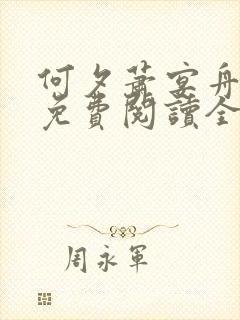 何夕蕭宴舟
免費閱讀全
周永軍